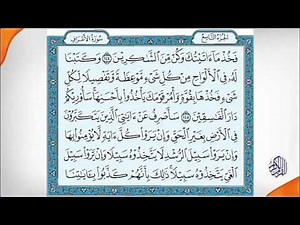 الجزء التاسع
سورة الأعراف
فَخُذْ مَا ءَاتَيْتُكَ وَكُن مِّنَ الشَّٰكِرِينَ ١٤٤ وَكَتَبْنَا
لَهُ فِي الْأَلْوَاحِ مِن كُلِّ شَيْءٍ مَّوْعِظَةً وَتَفْصِيلًا لِّكُلِّ
شَيْءٍ فَخُذْهَا بِقُوَّةٍ وَأْمُرْ قَوْمَكَ يَأْخُذُوا بِأَحْسَنِهَا سَأُوْرِيكُمْ
دَارَ الْفَٰسِقِينَ ١٤٥ سَأَصْرِفُ عَنْ ءَايَٰتِيَ الَّذِينَ يَتَكَبَّرُونَ
فِي الْأَرْضِ بِغَيْرِ الْحَقِّ وَإِن يَرَوْا كُلَّ ءَايَةٍ لَّا يُؤْمِنُوا بِهَا
وَإِن يَرَوْا سَبِيلَ الرُّشْدِ لَا يَتَّخِذُوهُ سَبِيلًا وَإِن يَرَوْا سَبِيلَ
الْغَيِّ يَتَّخِذُوهُ سَبِيلًا ذَٰلِكَ بِأَنَّهُمْ كَذَّبُوا بِـَٔايَٰتِنَا